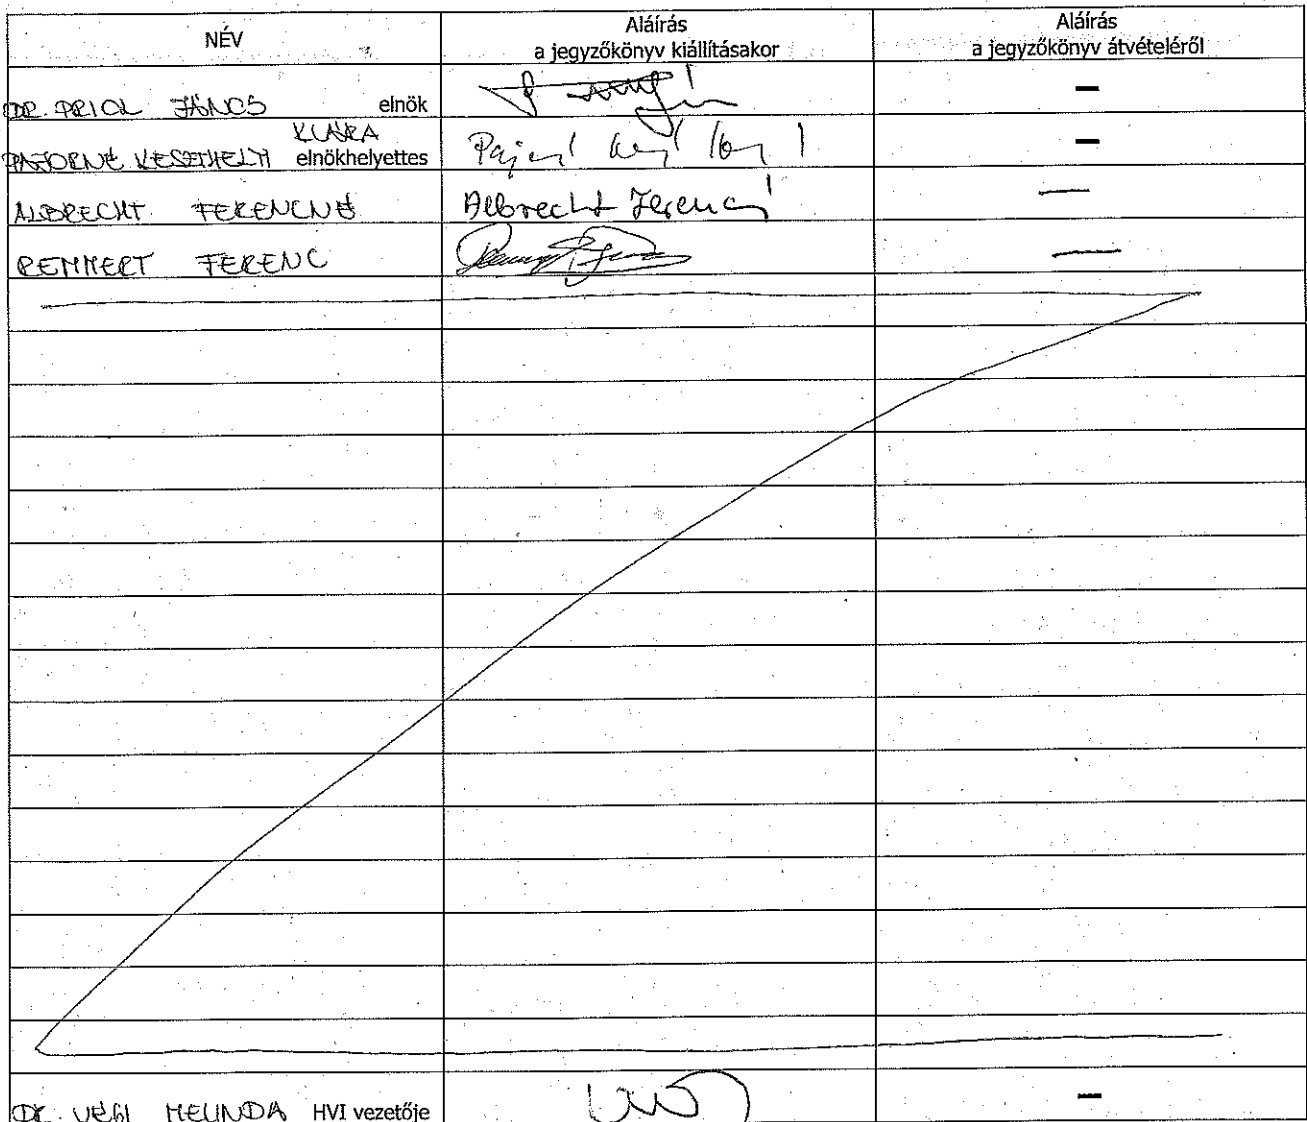 NÉV
Aláírás
a jegyzőkönyv kiállításakor
Aláírás
a jegyzőkönyv átvételéről
DR. PRIOL JÁNOS elnök
PAJORNÉ KESZTHELYI KLÁRA elnökhelyettes
ALBRECHT FERENCNÉ Albrecht Ferencné
REMMERT FERENC
DR. VÉGI MELINDA HVI vezetője